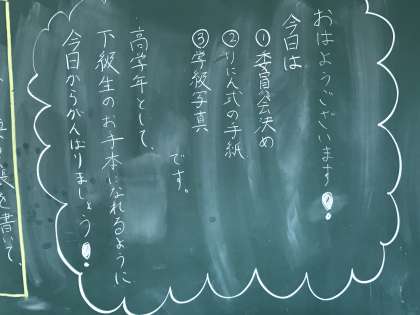 おはようございます!
今日は、
①委員会決め
②りにん式の手紙
③学級写真
です。
高学年として、
下級生のお手本になれるように
今日からがんばりましょう!
を書いて、